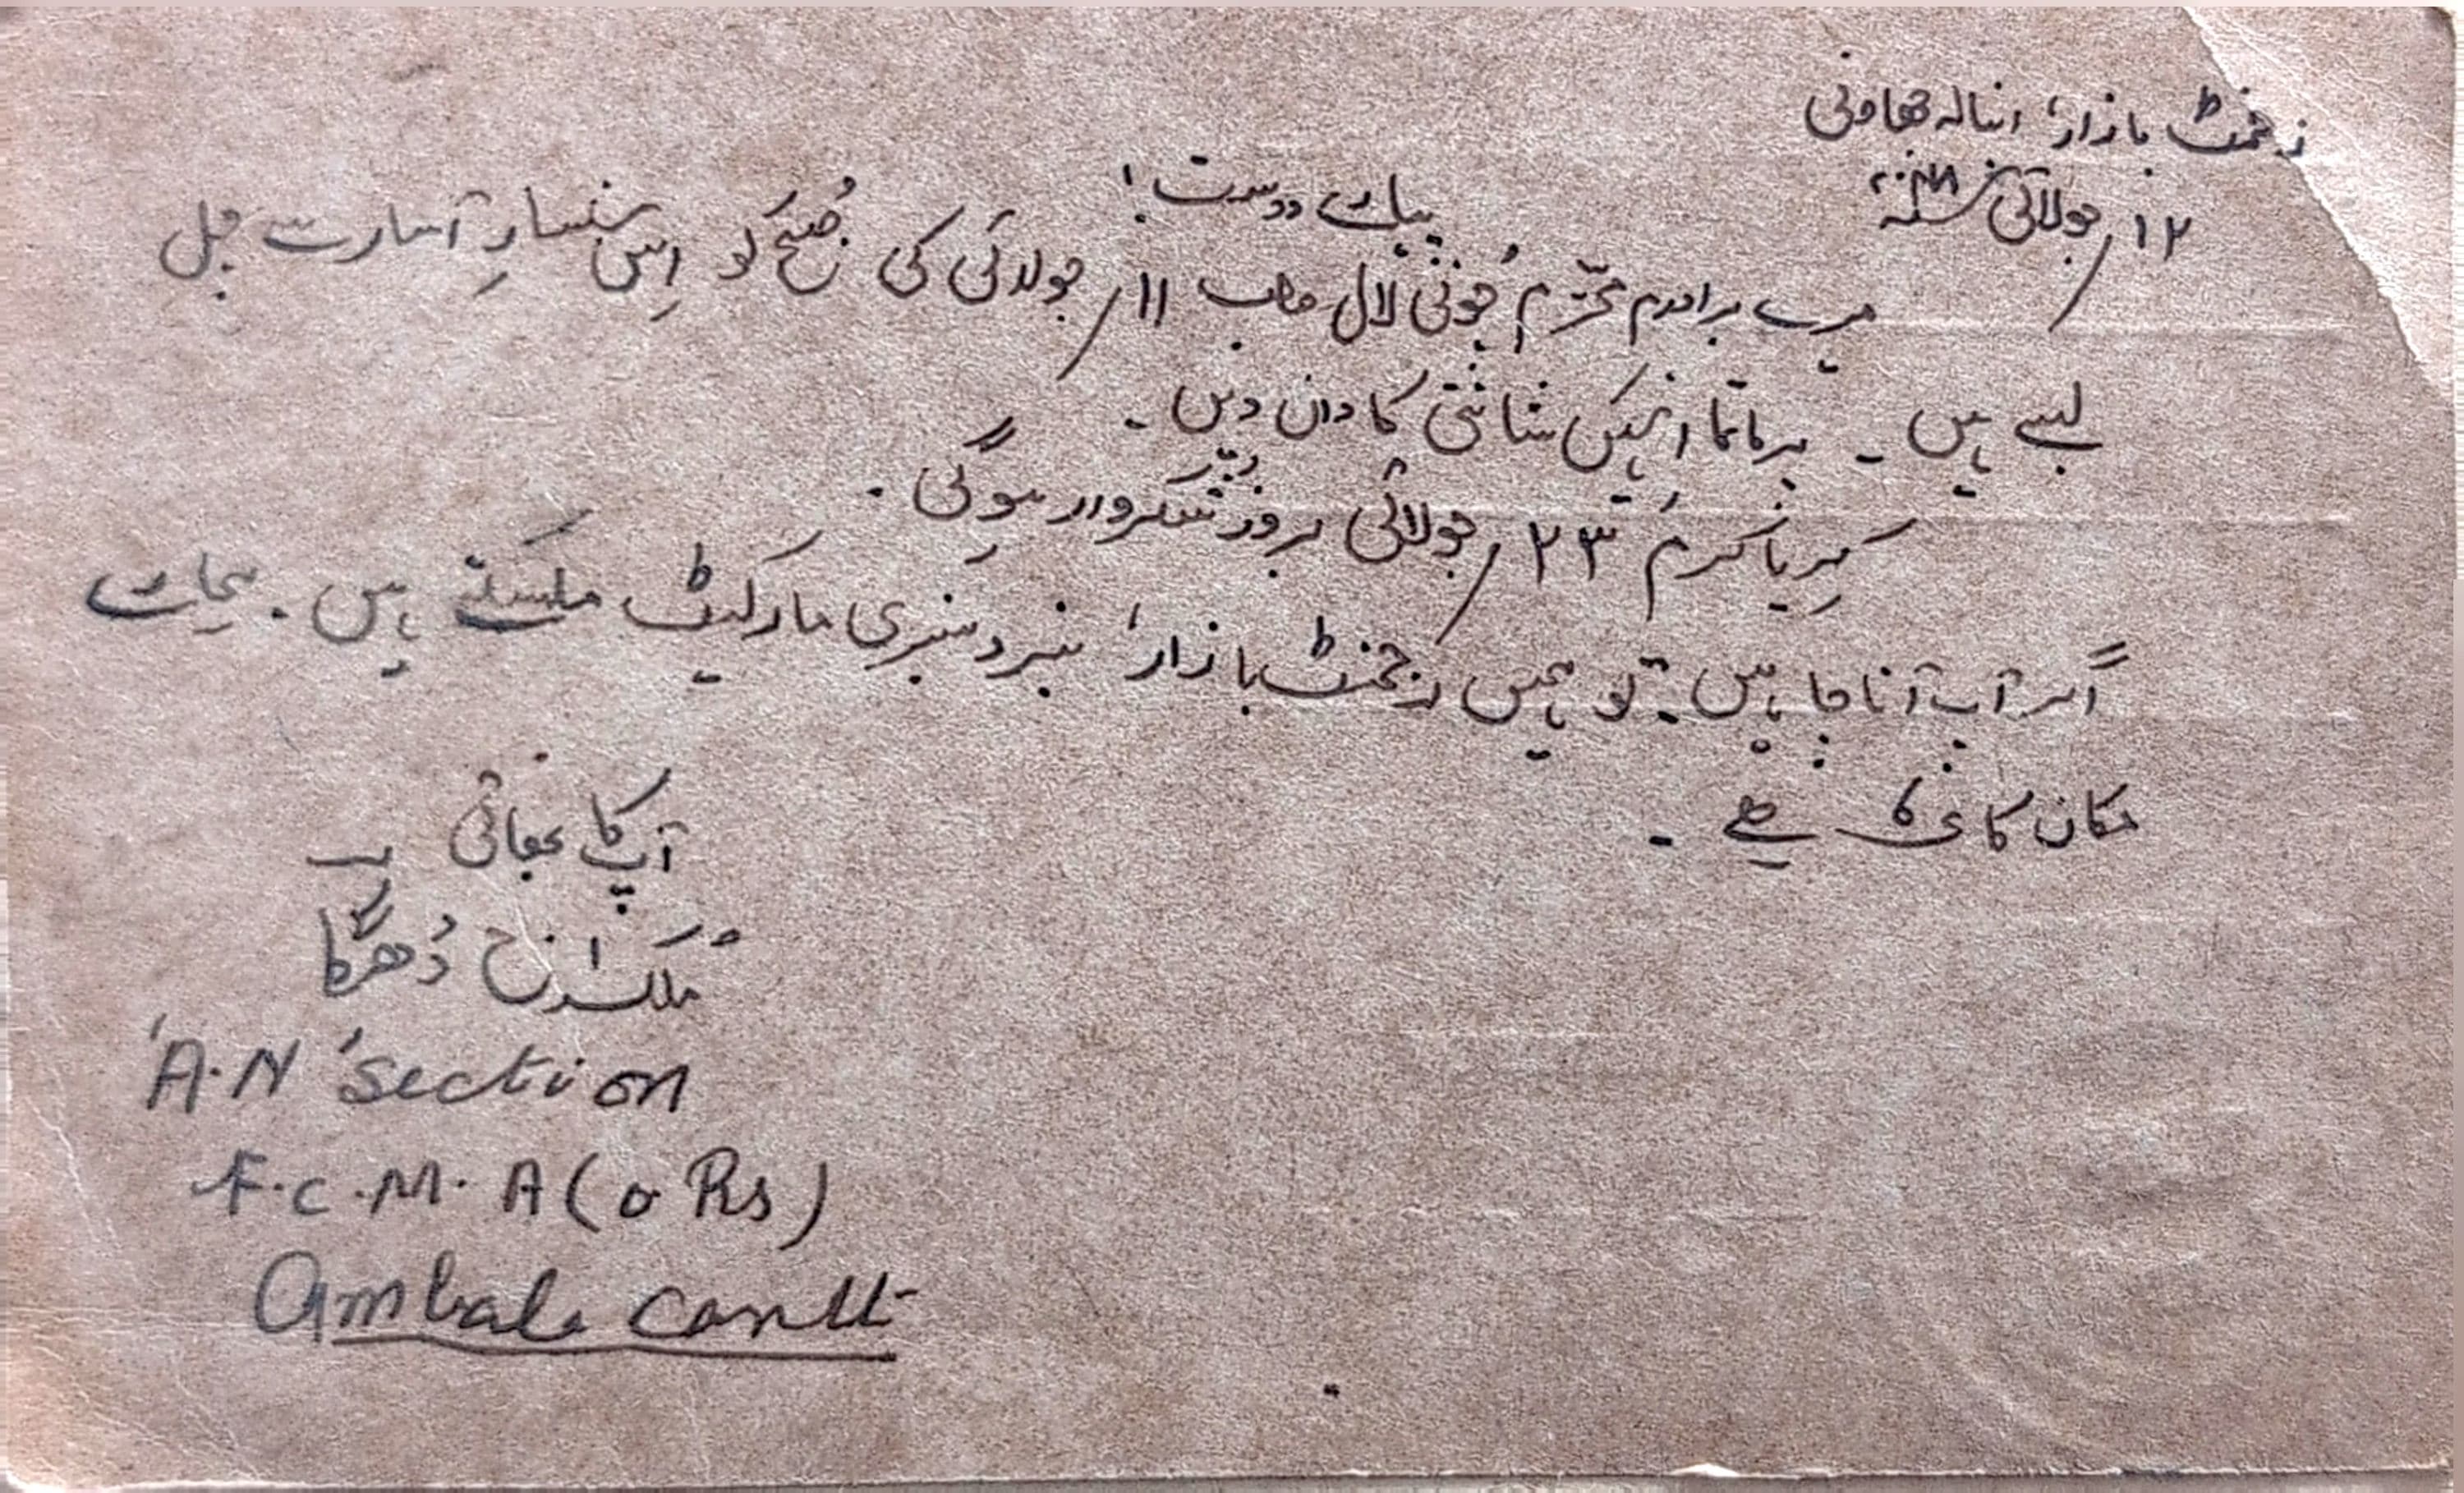 رجمنٹ بازار، انبالہ چھاؤنی
۱۲/ جولائی
پیارے دوست!
میرے برادرم محترم چونی لال صاحب ۱۱/ جولائی کی صُبح کو اِس سنسارِ آسار سے چل
بسے ہیں۔ پرماتما انہیں شانتی کا دان دیں۔
کِریا کرم ۲۳/ جولائی بروز شکروار ہوگی۔
اگر آپ آنا چاہیں۔ تو ہمیں رجمنٹ بازار، نزد سبزی مارکیٹ مل سکتے ہیں۔ بجائے
مکان کافی کا ہے۔
آپ کا بھائی
مُلک راج دُھرگا
'A.N' section
F.C.M.A (o Rs)
Ambala Cantt-